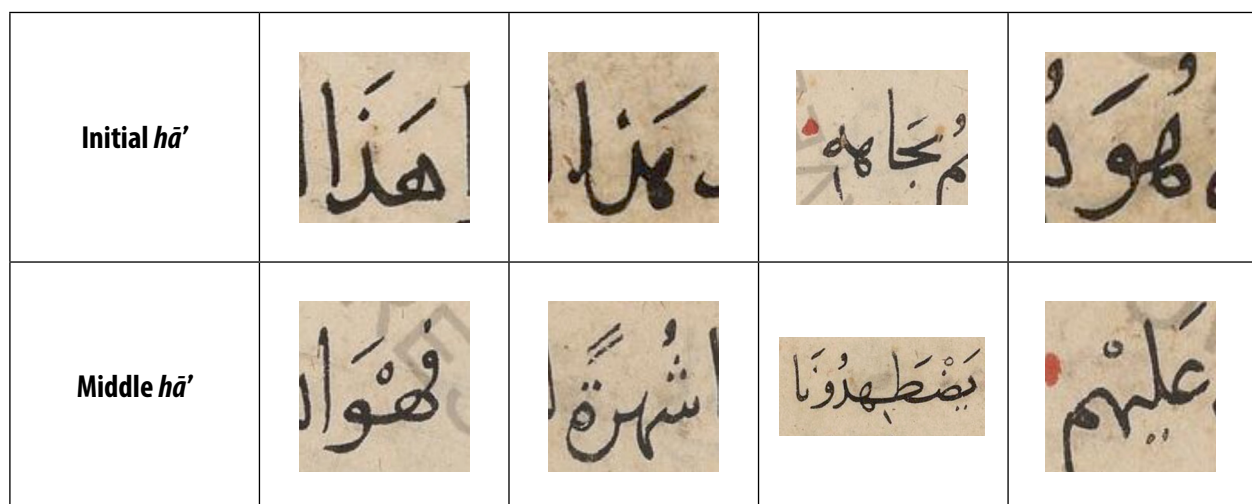 Initial hā’
هَذَا
هذا
هُوَ
Middle hā’
فَهْوَا
شُهرةً
يَضْطَهدُونَا
عَليْهم